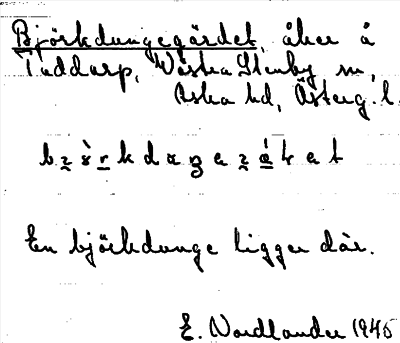 Björkdungegärdet, åker å
Tuddarp, Västra Stenby sn,
Aska hd, Österg. l.
En björkdunge ligger där.
E. Nordlander 1945